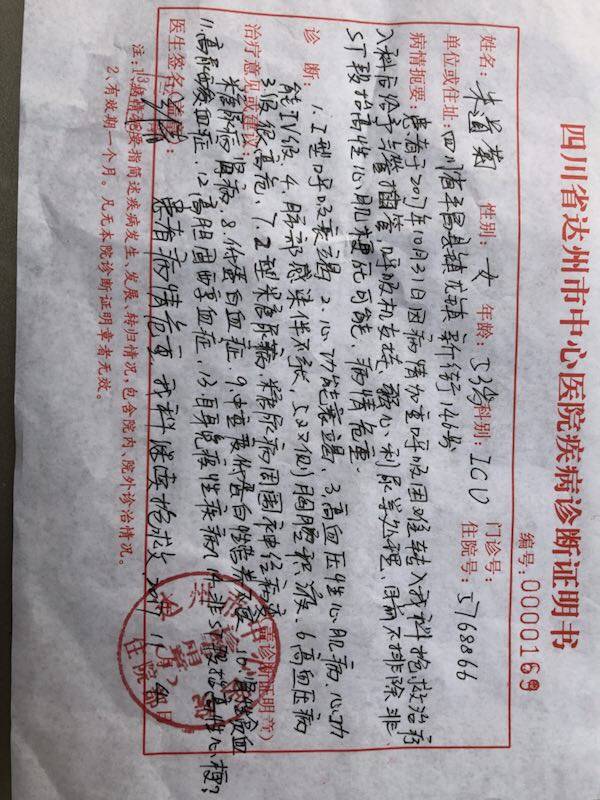 四川省达州市中心医院疾病诊断证明书
编号:0000169
姓名: 朱道菊 性别: 女 年龄: 53岁 科别: ICU 门诊号:
单位或住址: 四川省平昌县镇龙镇新街146号 住院号: 5768866
病情扼要: 患者于2017年10月31日因病情加重呼吸困难转入我科抢救治疗
入科后给予气管插管、呼吸机支持、强心、利尿等处理、目前不排除非
ST段抬高性心肌梗死可能、病情危重。
诊 断: 1.I型呼吸衰竭 2.心功能衰竭、3.高血压性心肌病、心功
能IV级 4.肺部感染伴不张、5.双侧胸腔积液、6.高血压病
治疗意见或建议:
3级很高危、7.2型糖尿病 糖尿病周围神经病变
糖尿病肾病、8.低蛋白血症、9.中重度低蛋白性营养不良、10.
(盖诊断证明章)
11.高尿酸血症、12.高胆固醇血症、13.自身免疫性疾病 14.非ST段抬高性心梗?
医生签名
患者病情危重,我科继续抢救
2017 11
住院部
注:1.病情扼要指简述疾病发生、发展、转归情况,包含院内、院外诊治情况。
2.有效期一个月。凡无本院诊断证明章者无效。